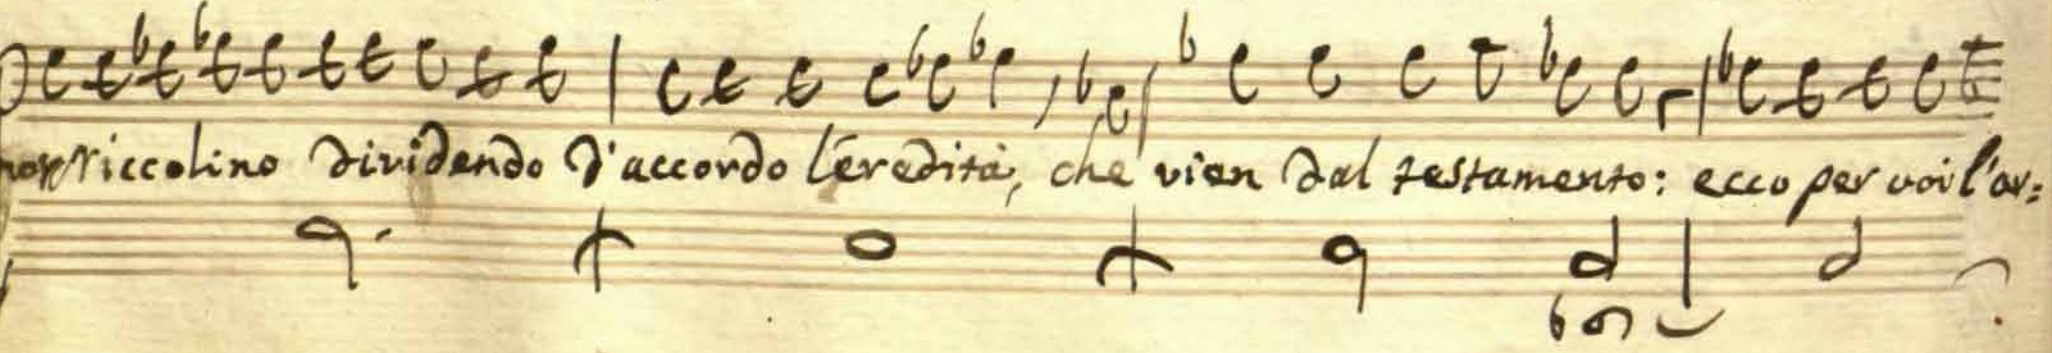 nor Niccolino dividendo d'accordo l'eredità, che vien dal testamento: ecco per voi l'ar=
b6